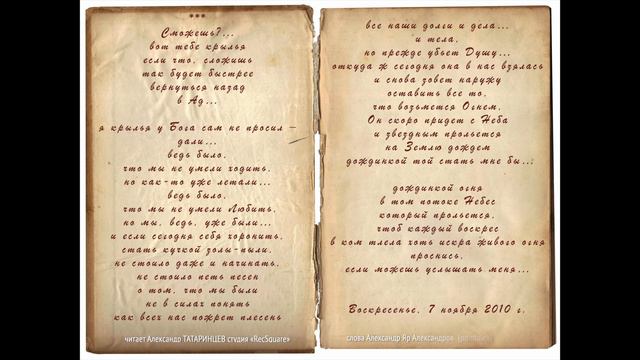 ***
Сможешь?...
вот тебе крылья
если что, сложишь
так будет быстрее
вернуться назад
в Ад...
я крылья у Бога сам не просил –
дали...
ведь было,
что мы не умели ходить,
но как-то уже летали...
ведь было,
что мы не умели Любить,
но мы, ведь, уже были...
и если сегодня себя хоронить,
стать кучкой золы-пыли,
не стоило даже и начинать,
не стоило петь песен
о том, что мы были
не в силах понять
как всех нас пожрет плесень
читает Александр ТАТАРИНЦЕВ студия «RecSquare»
все наши долги и дела...
и тела,
но прежде убьет Душу...
откуда ж сегодня она в нас взялась
и снова зовет наружу
оставить все то,
что возьмется Огнем,
Он скоро придет с Неба
и звездным прольется
на Землю дождем
дождинкой той стать мне бы...
дождинкой огня
в том потоке Небес
который прольется,
чтоб каждый воскрес
в ком тлела хоть искра живого огня
проснись,
если можешь услышать меня...
Воскресенье, 7 ноября 2010 г.
слова Александр Яр Александров